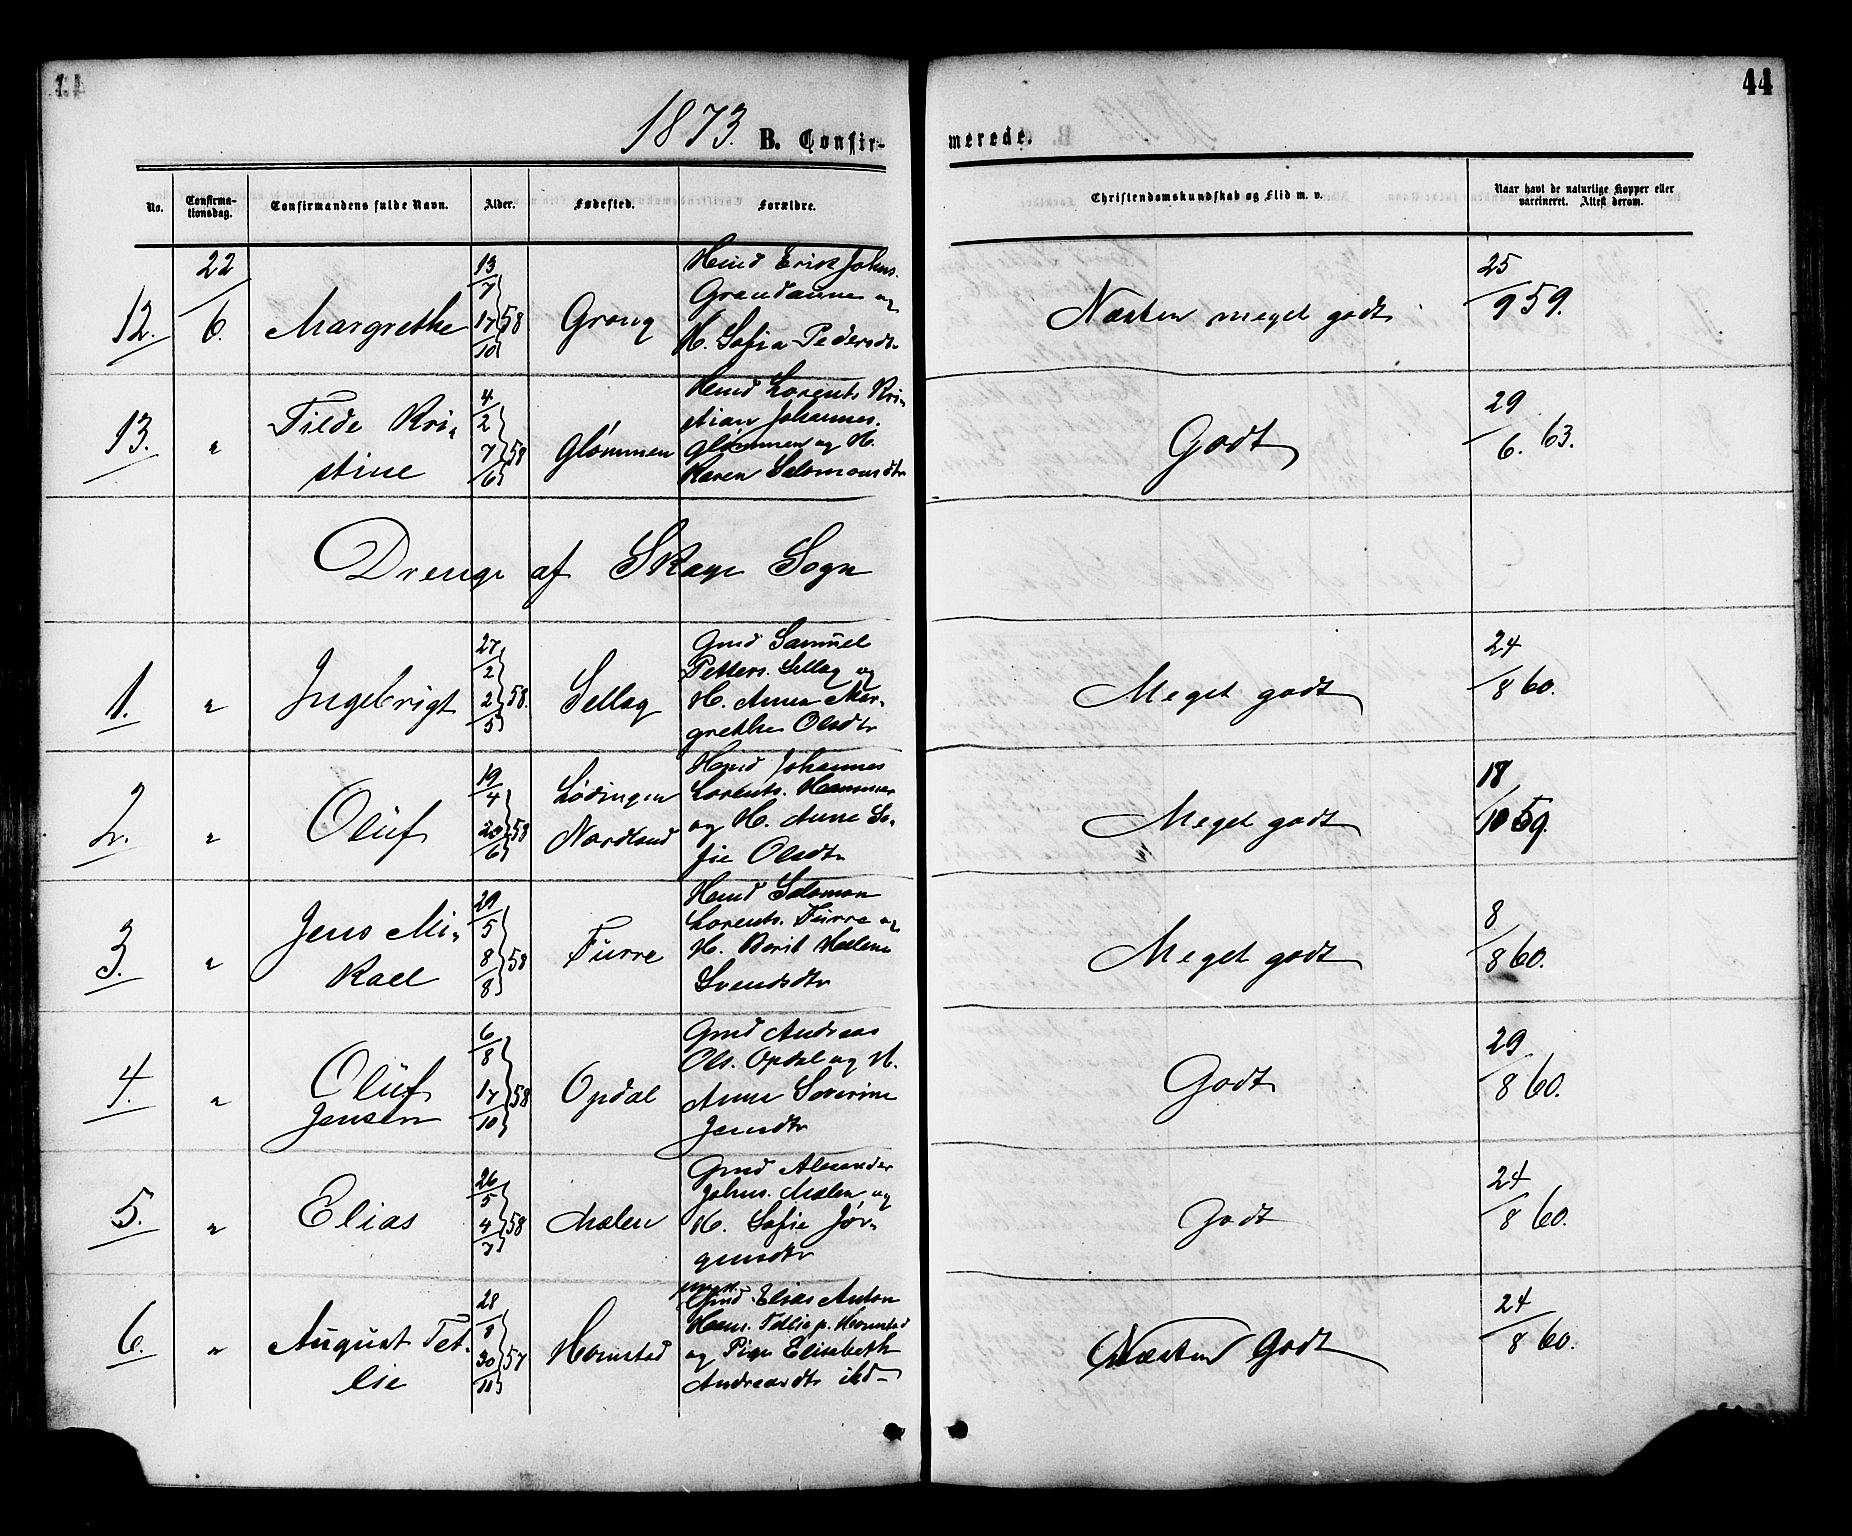 44
1873. B. Confirmerede.
No. Confirmationsdag. Confirmandens fulde Navn. Alder. Fødested. Forældre. Christendomskundskab og Flid m. v. Naar havt de naturlige Kopper eller vaccineret. Attest derom.
12. 22/6. Margrethe 13/7 17/10 58 Grong Hmd Erik Johns.
Grandaune og
H. Sofia Pedersdt. Næsten meget godt 25/9 59.
13. " Tilde Kri-
stine 4/2 7/6 58 Glømmen Hmd Lorents Kri-
stian Johannes.
Glømmen og H.
Karen Salomonsdtr Godt 29/6. 63.
Drenge af Skage Sogn
1. " Ingebrigt 27/2 2/5 58. Sellæg Gmd Samuel
Petters. Sellæg og
H. Anna Mar-
grethe Olsdtr Meget godt 24/8 60.
2. " Oluf 19/4 20/6 58 Lødingen
Nordland Hmd Johannes
Lorents. Hammer
og H. Anne So-
fie Olsdtr Meget godt 18/10 59.
3. " Jens Mi-
kael 29/5 8/8 58 Furre Hmd Salomon
Lorents. Furre og
H. Berit Helene
Svendsdtr Meget godt 8/8 60.
4. " Oluf
Jensen 6/8 17/10 58 Opdal Gmd Andreas
Ols. Opdal og H.
Anne Severine
Jensdtr Godt 29/8 60.
5. " Elias 26/5 4/7 58 Mælen Gmd Alexander
Johns. Mælen og
H. Sofie Jør-
gensdtr Godt 24/8 60.
6. " August Tet-
lie 28/9 30/11 57 Homstad Gmd Elias Anton
Hans. Tetlie p. Homstad
og Pige Elisabeth
Andreasdtr ibd Næsten Godt 24/8 60.